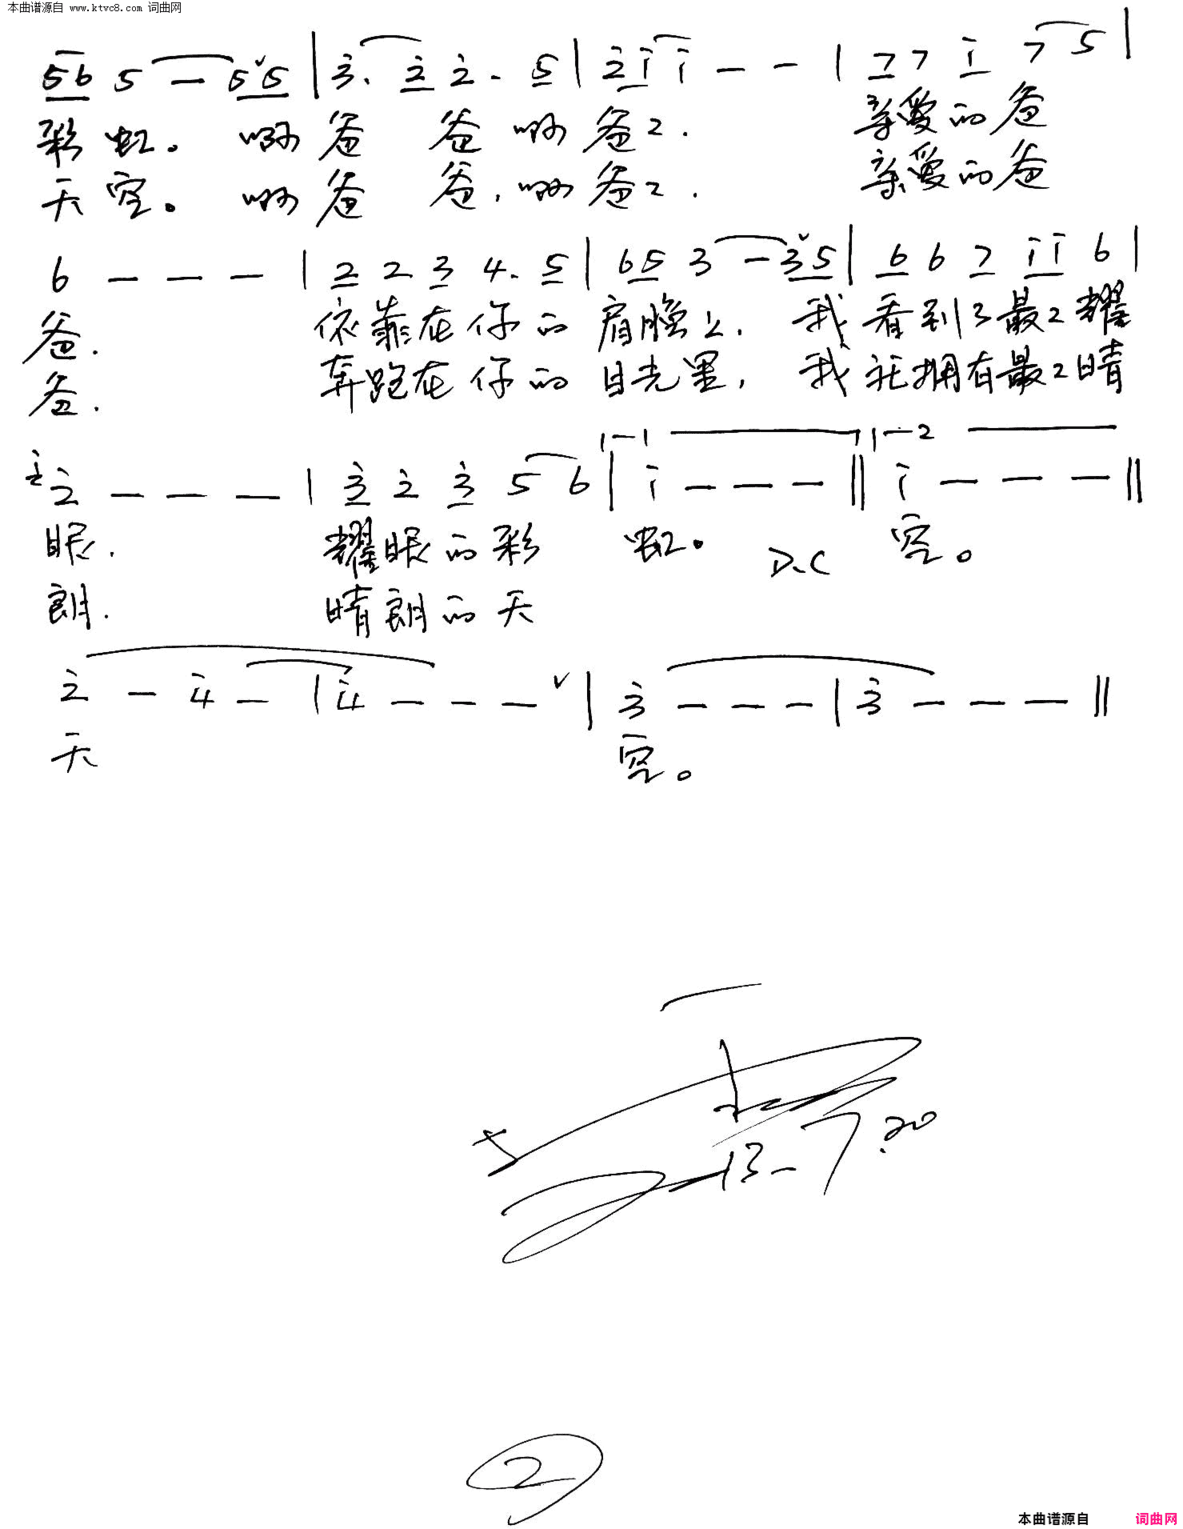 本曲谱源自 www.ktvc8.com 词曲网
56 5 — 55 | 3. 2 2. 5 | 2 1 1 — — | 7 7 1 7 5 |
彩虹。 啊爸 爸 啊爸2. 亲爱的爸
天空。 啊爸 爸, 啊爸2. 亲爱的爸
6 — — — | 2 2 3 4. 5 | 65 3 — 35 | 6 6 7 1 1 6 |
爸. 依靠在你的肩膀上, 我看到了最2耀
爸. 奔跑在你的目光里, 我托拥有最2晴
2 — — — | 3 2 3 5 6 | 1 — — — || 1 — — — ||
眼. 耀眼的彩 虹。 D.C 空。
朗. 晴朗的天
2 — 4 — | 4 — — — ∨ | 3 — — — | 3 — — — ||
天 空。
13-7.20
2
本曲谱源自 词曲网